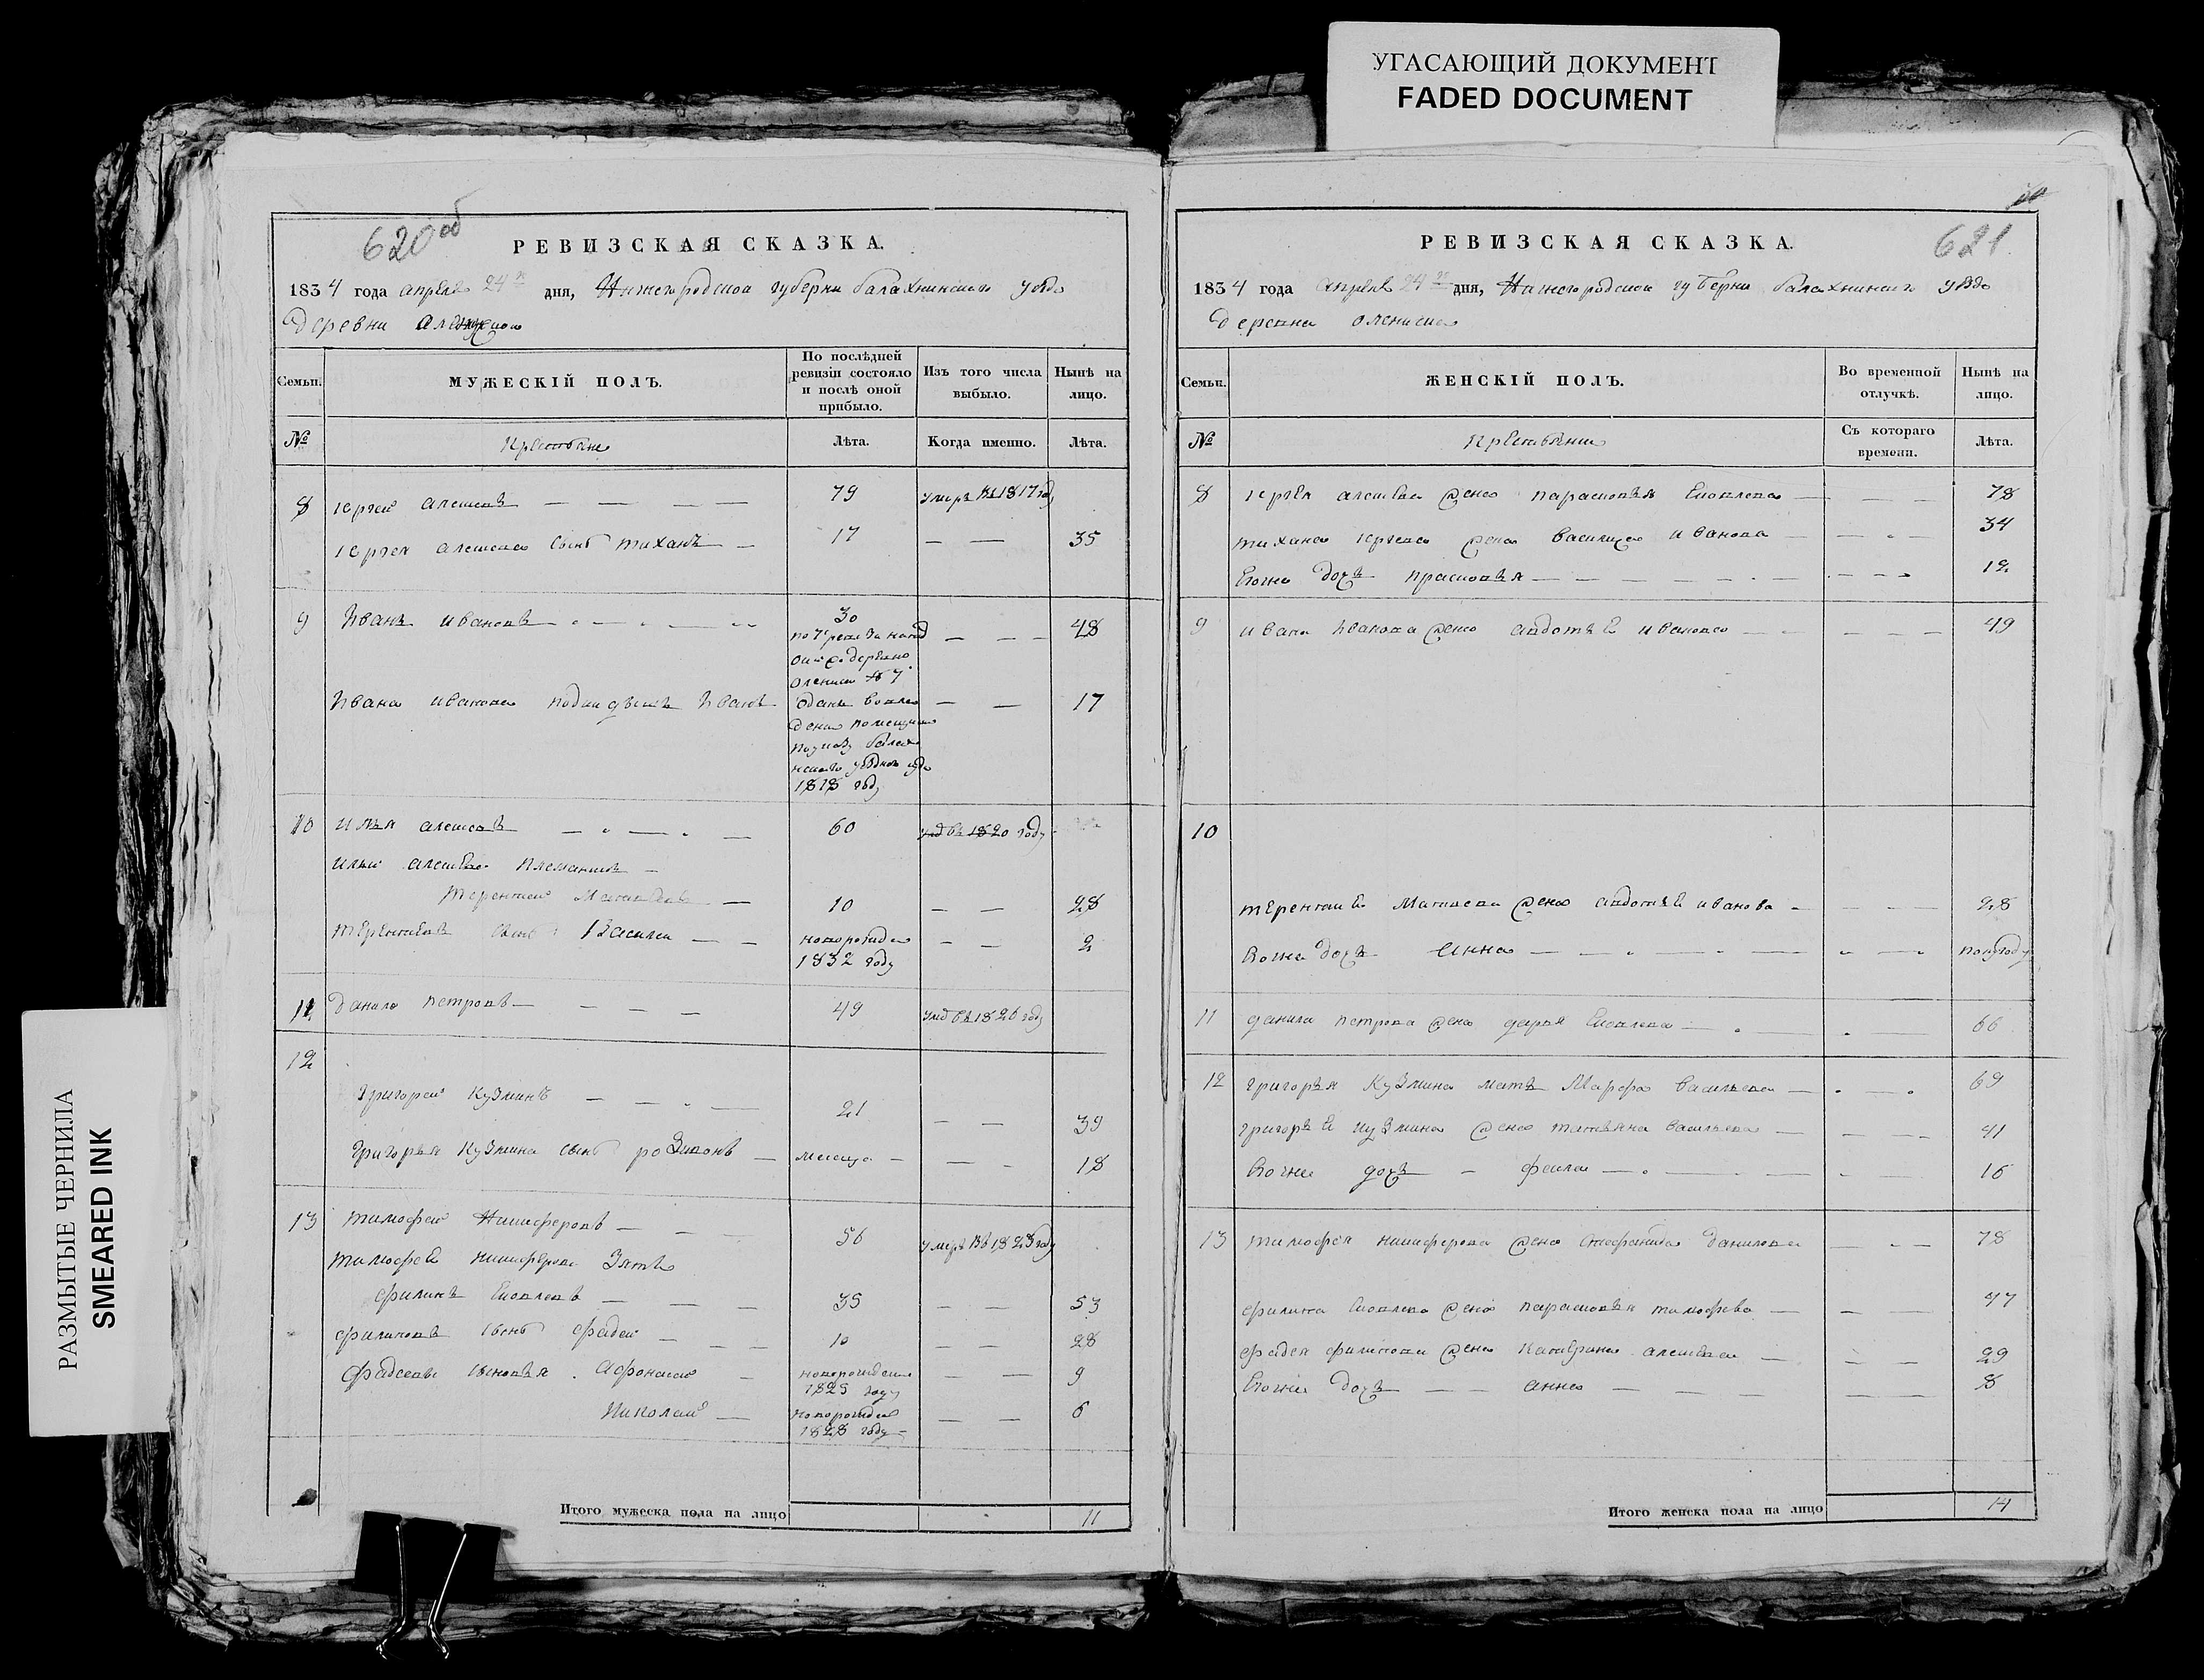 УГАСАЮЩИЙ ДОКУМЕНТ
FADED DOCUMENT
РАЗМЫТЫЕ ЧЕРНИЛА
SMEARED INK
620 об
РЕВИЗСКАЯ СКАЗКА.
1834 года апреля 24 дня, Нижегородской губерни балахнинскаго уезда
деревни
Семьи. МУЖЕСКІЙ ПОЛЪ. По послѣдней ревизіи состояло и послѣ оной прибыло. Изъ того числа выбыло. Нынѣ на лицо.
№ Крестьяне Лѣта. Когда именно. Лѣта.
8 сергей алексеевъ 79 умеръ въ 1817 году
сергея алексеева сынъ тиханъ 17 35
9 Иванъ ивановъ 30 48
Ивана иванова Иванъ 17
1818 году
10 илья алексеевъ 60 умъ въ 1820 году
ильи алексеева племянникъ
терентей Матвеевъ 10 28
терентьевъ сынъ Василей новорожден 2
1832 году
11 данило петровъ 49 умъ въ 1826 году
12
григорей кузминъ 21 39
григорья кузмина сынъ родионъ месяца 18
13 тимофей никифоровъ 56 умеръ въ 1825 году
тимофея никифорова зять
филипъ яковлевъ 35 53
филиповъ сынъ фадей 10 28
фадеевы сыновья афонасей новорожденъ 9
1825 году
николай новорожденъ 6
1828 году
Итого мужеска пола на лицо 11
621.
РЕВИЗСКАЯ СКАЗКА.
1834 года апреля 24 дня, Нижегородской губерни балахнинскаго уезда
деревни
Семьи. ЖЕНСКІЙ ПОЛЪ. Во временной отлучкѣ. Нынѣ на лицо.
№ Крестьянки Съ котораго времени. Лѣта.
8 сергея алексеева жена парасковья яковлева 78
тихана сергеева жена василиса иванова 34
дочь прасковья 12
9 ивана иванова жена авдотья иванова 49
10
терентия матвеева жена авдотья иванова 28
дочь анна полугоду
11 данила петрова жена дарья яковлева 66
12 григорья кузмина мать Марфа васильева 69
григорья кузмина жена татьяна васильева 41
дочь фекла 16
13 тимофея никифорова жена стефанида данилова 78
филипа яковлева жена парасковья тимофеева 47
фадея филипова жена катерина алексеева 29
дочь анна 8
Итого женска пола на лицо 14